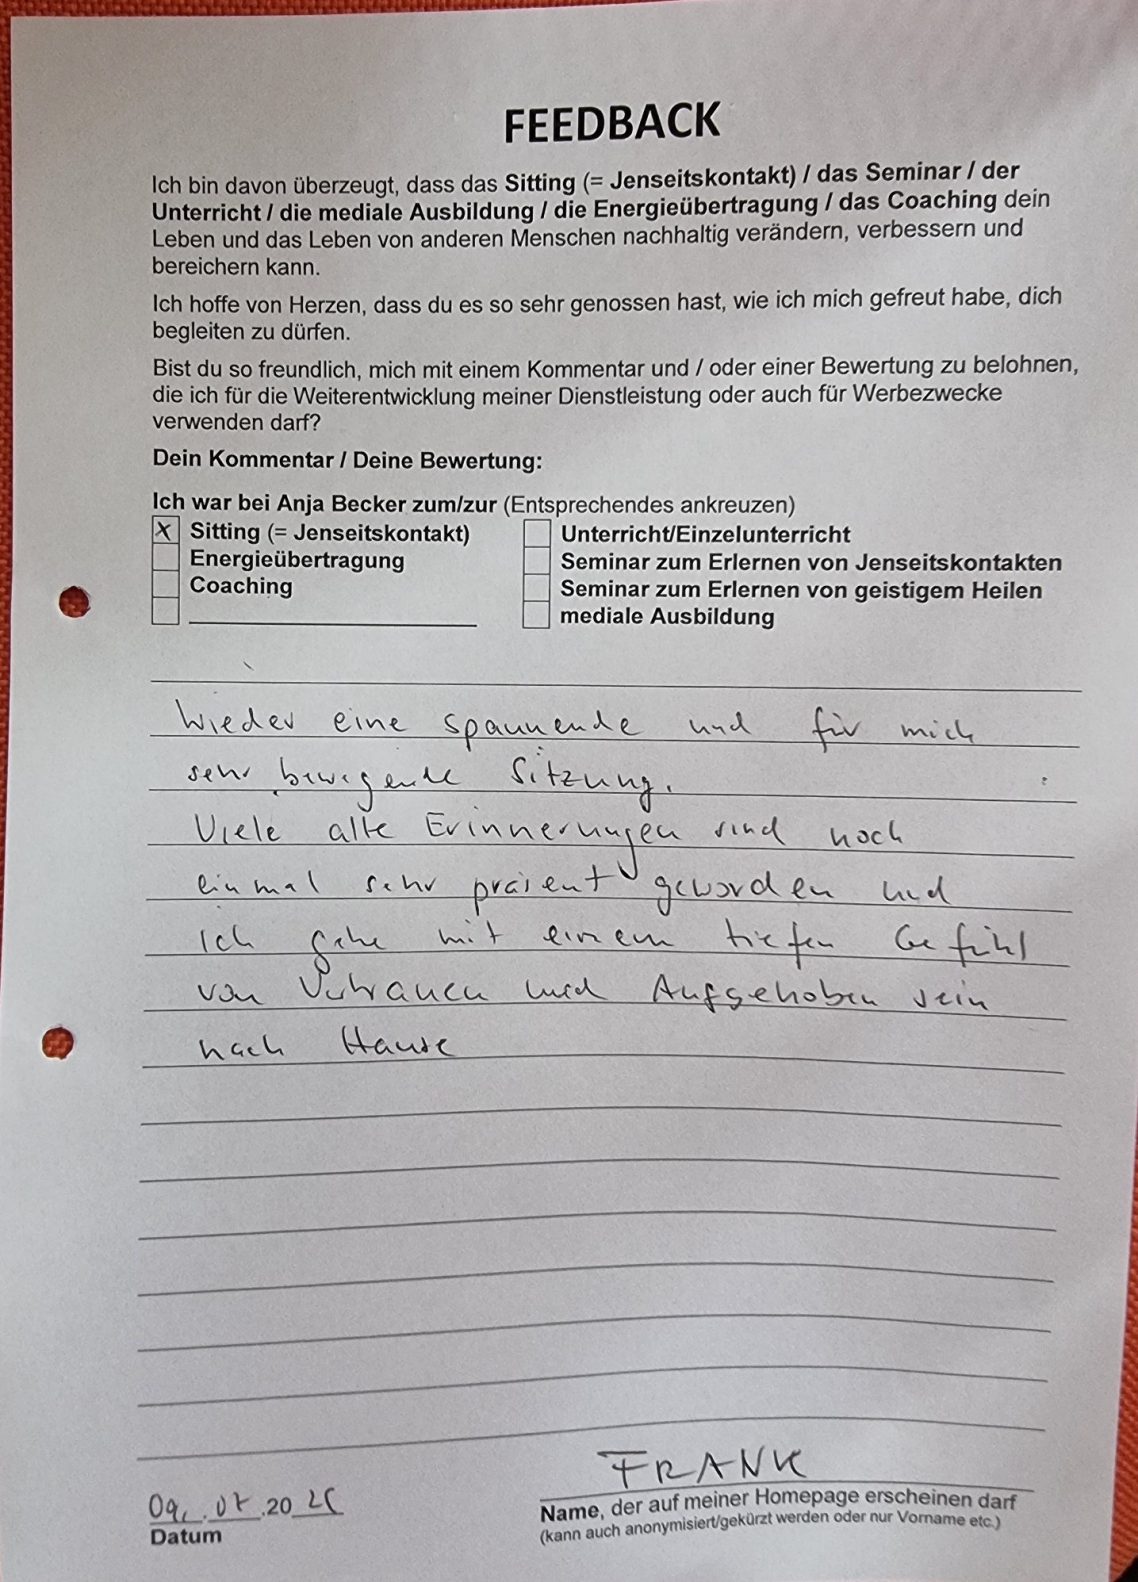 FEEDBACK
Ich bin davon überzeugt, dass das Sitting (= Jenseitskontakt) / das Seminar / der
Unterricht / die mediale Ausbildung / die Energieübertragung / das Coaching dein
Leben und das Leben von anderen Menschen nachhaltig verändern, verbessern und
bereichern kann.
Ich hoffe von Herzen, dass du es so sehr genossen hast, wie ich mich gefreut habe, dich
begleiten zu dürfen.
Bist du so freundlich, mich mit einem Kommentar und / oder einer Bewertung zu belohnen,
die ich für die Weiterentwicklung meiner Dienstleistung oder auch für Werbezwecke
verwenden darf?
Dein Kommentar / Deine Bewertung:
Ich war bei Anja Becker zum/zur (Entsprechendes ankreuzen)
X Sitting (= Jenseitskontakt)
Energieübertragung
Coaching
Unterricht/Einzelunterricht
Seminar zum Erlernen von Jenseitskontakten
Seminar zum Erlernen von geistigem Heilen
mediale Ausbildung
Wieder eine spannende und für mich
sehr bewegende Sitzung.
Viele alte Erinnerungen sind noch
einmal sehr präsent geworden und
ich gehe mit einem tiefen Gefühl
von Vertrauen und Aufgehoben sein
nach Hause
FRANK
Name, der auf meiner Homepage erscheinen darf
(kann auch anonymisiert/gekürzt werden oder nur Vorname etc.)
09. 07.20
Datum